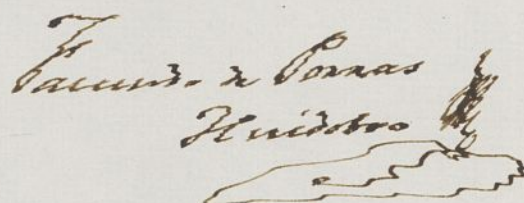 Facundo de Porras
Huidobro